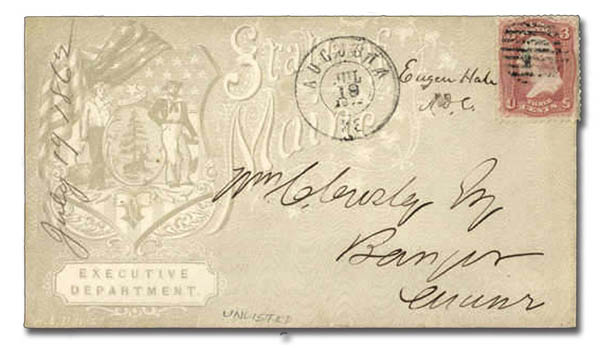 July 19 1862
State of
Maine
AUGUSTA
JUL
19
ME
Eugen Hale
3
3
U
THREE
CENTS
S
Wm
Esq
Bangor
Maine
EXECUTIVE
DEPARTMENT.
UNLISTED